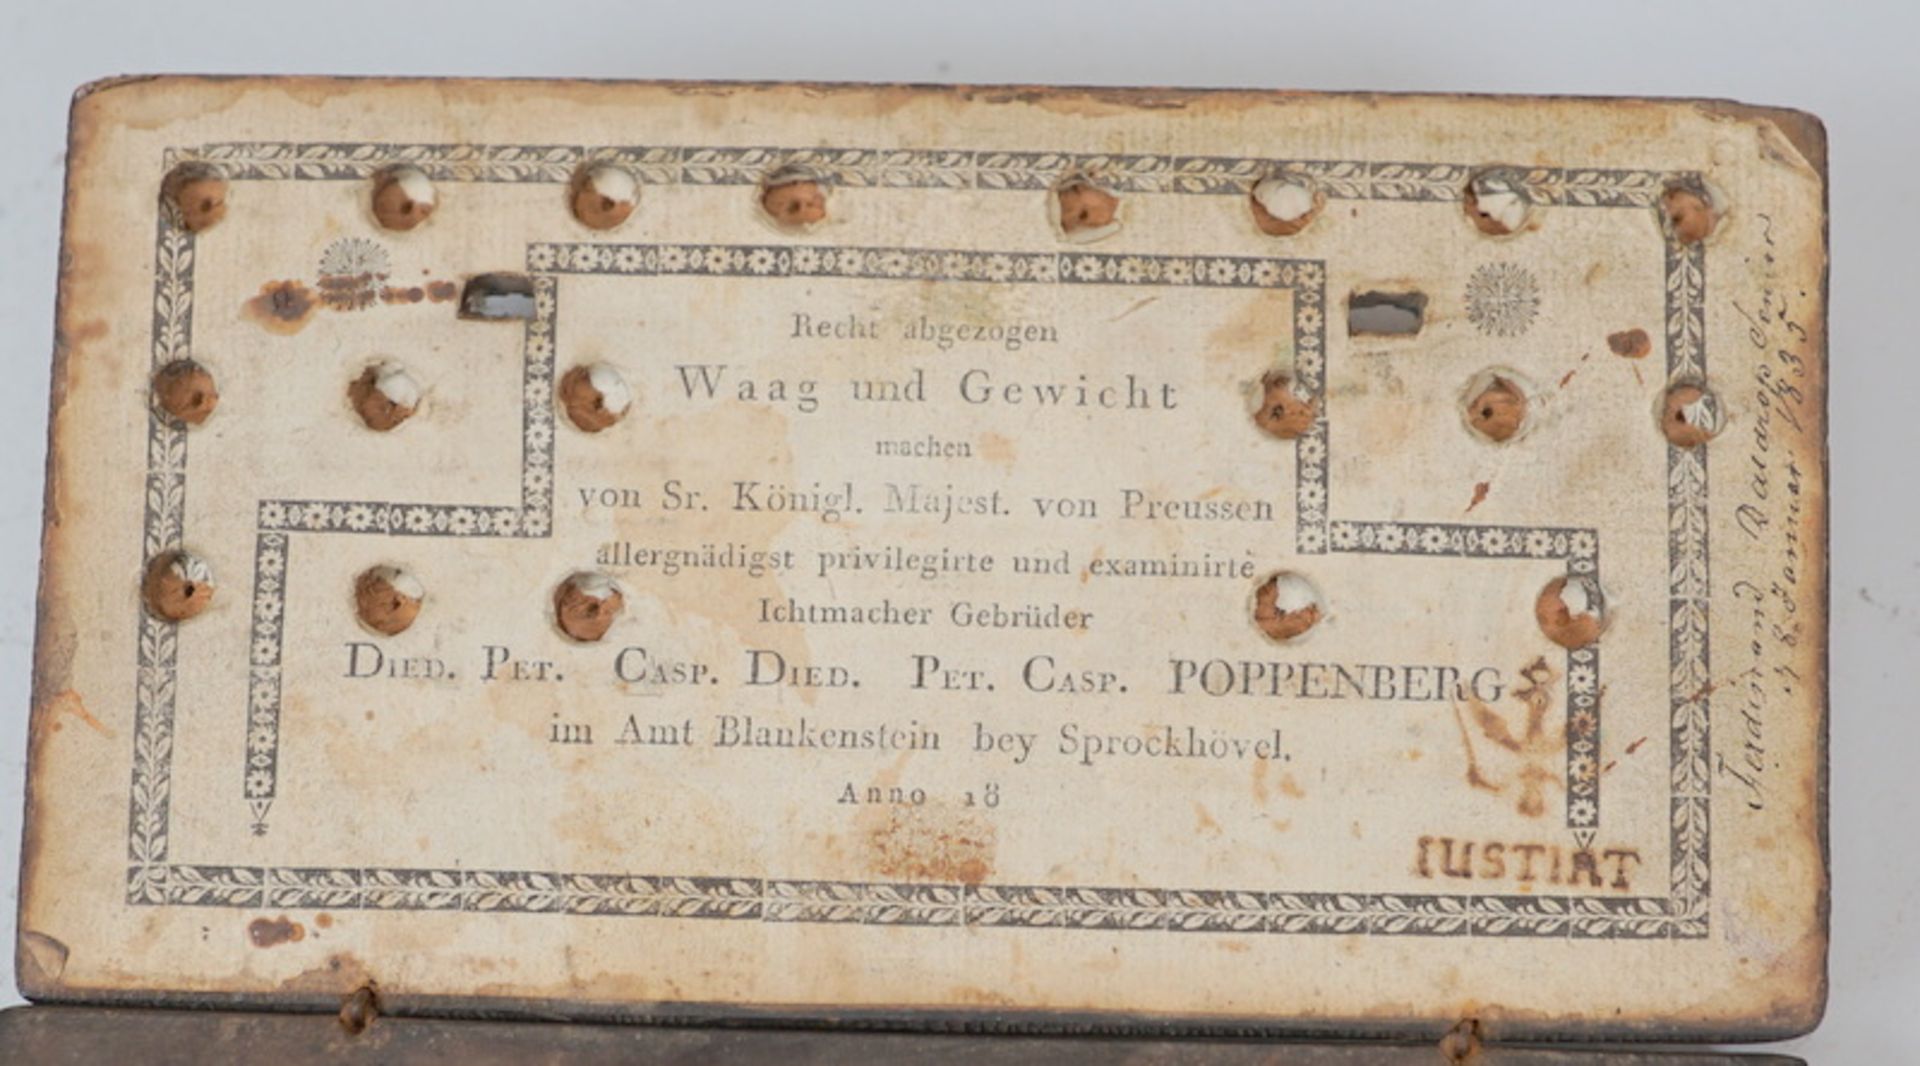 Recht abgezogen
Waag und Gewicht
machen
von Sr. Königl. Majest. von Preussen
allergnädigst privilegirte und examinirte
Ichtmacher Gebrüder
DIED. PET. CASP. DIED. PET. CASP. POPPENBERG
im Amt Blankenstein bey Sprockhövel.
Anno 18
IUSTIRT
Ferdinand Daudrop Senior
28 Januar 1835.